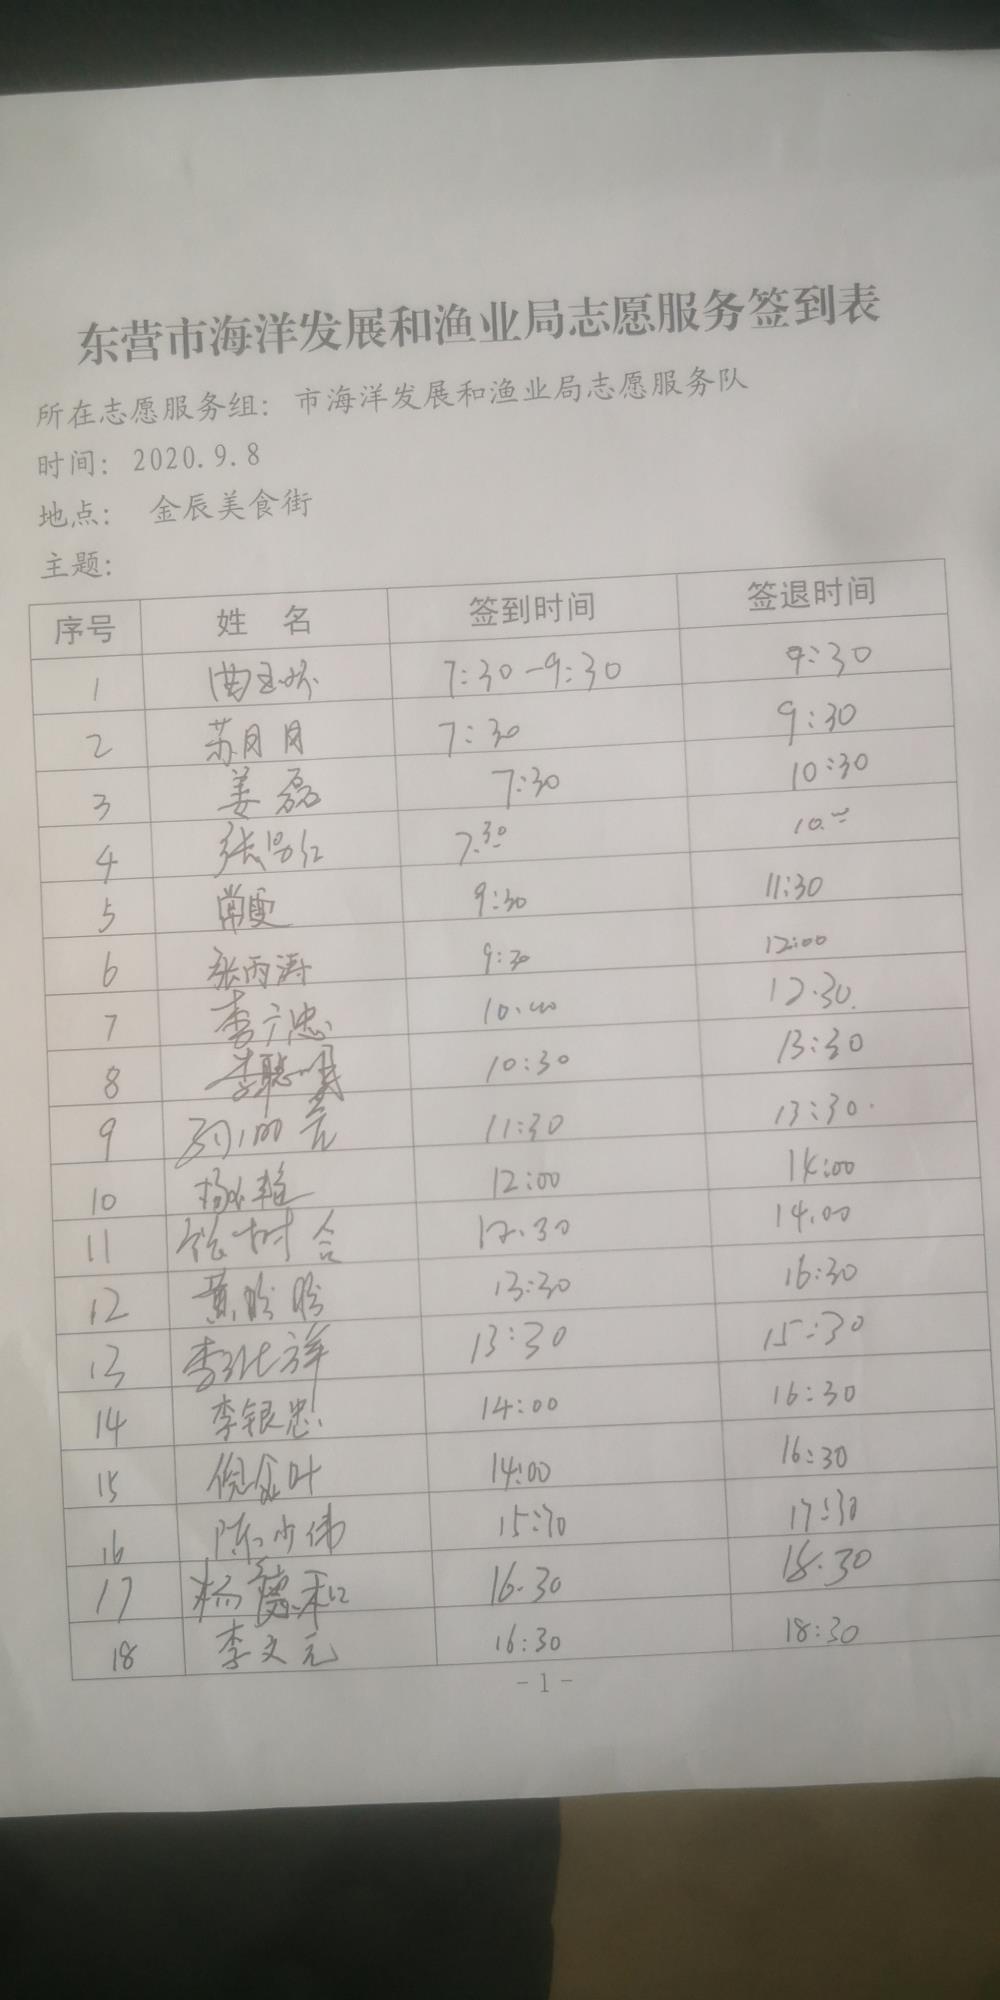 东营市海洋发展和渔业局志愿服务签到表
所在志愿服务组：市海洋发展和渔业局志愿服务队
时间：2020.9.8
地点： 金辰美食街
主题：
序号 姓 名 签到时间 签退时间
1 7:30-9:30 9:30
2 苏月月 7:30 9:30
3 姜磊 7:30 10:30
4 7.30
5 常雯 9:30 11:30
6 张丙涛 9:30 12:00
7 李广忠 10.00 12.30
8 李聪明 10:30 13:30
9 11:30 13:30
10 12:00 14:00
11 张树合 12.30 14.00
12 黄盼盼 13:30 16:30
13 13:30 15:30
14 李银忠 14:00 16:30
15 倪金叶 14:00 16:30
16 陈少伟 15:30 17:30
17 杨德和 16.30 18.30
18 李文元 16:30 18:30
- 1 -